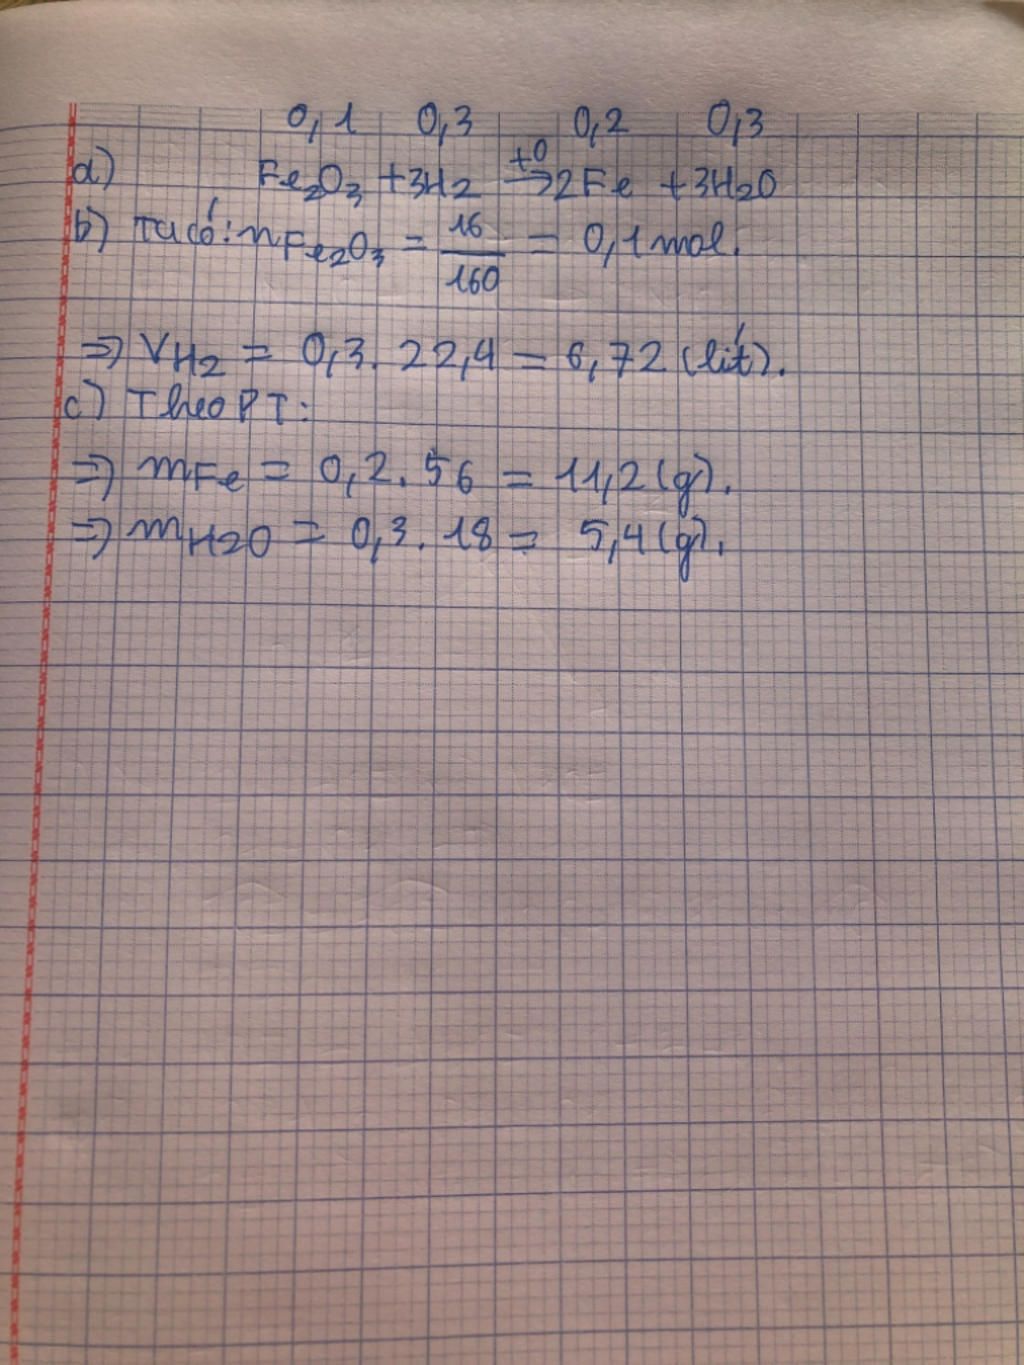 0,1 0,3 0,2 0,3
a) Fe2O3 + 3H2 →t0 2Fe + 3H2O
b) Ta có: nFe2O3 = 16/160 = 0,1 mol.
=> VH2 = 0,3. 22,4 = 6,72 (lít).
c) Theo PT:
=> mFe = 0,2. 56 = 11,2 (g).
=> mH2O = 0,3. 18 = 5,4 (g).